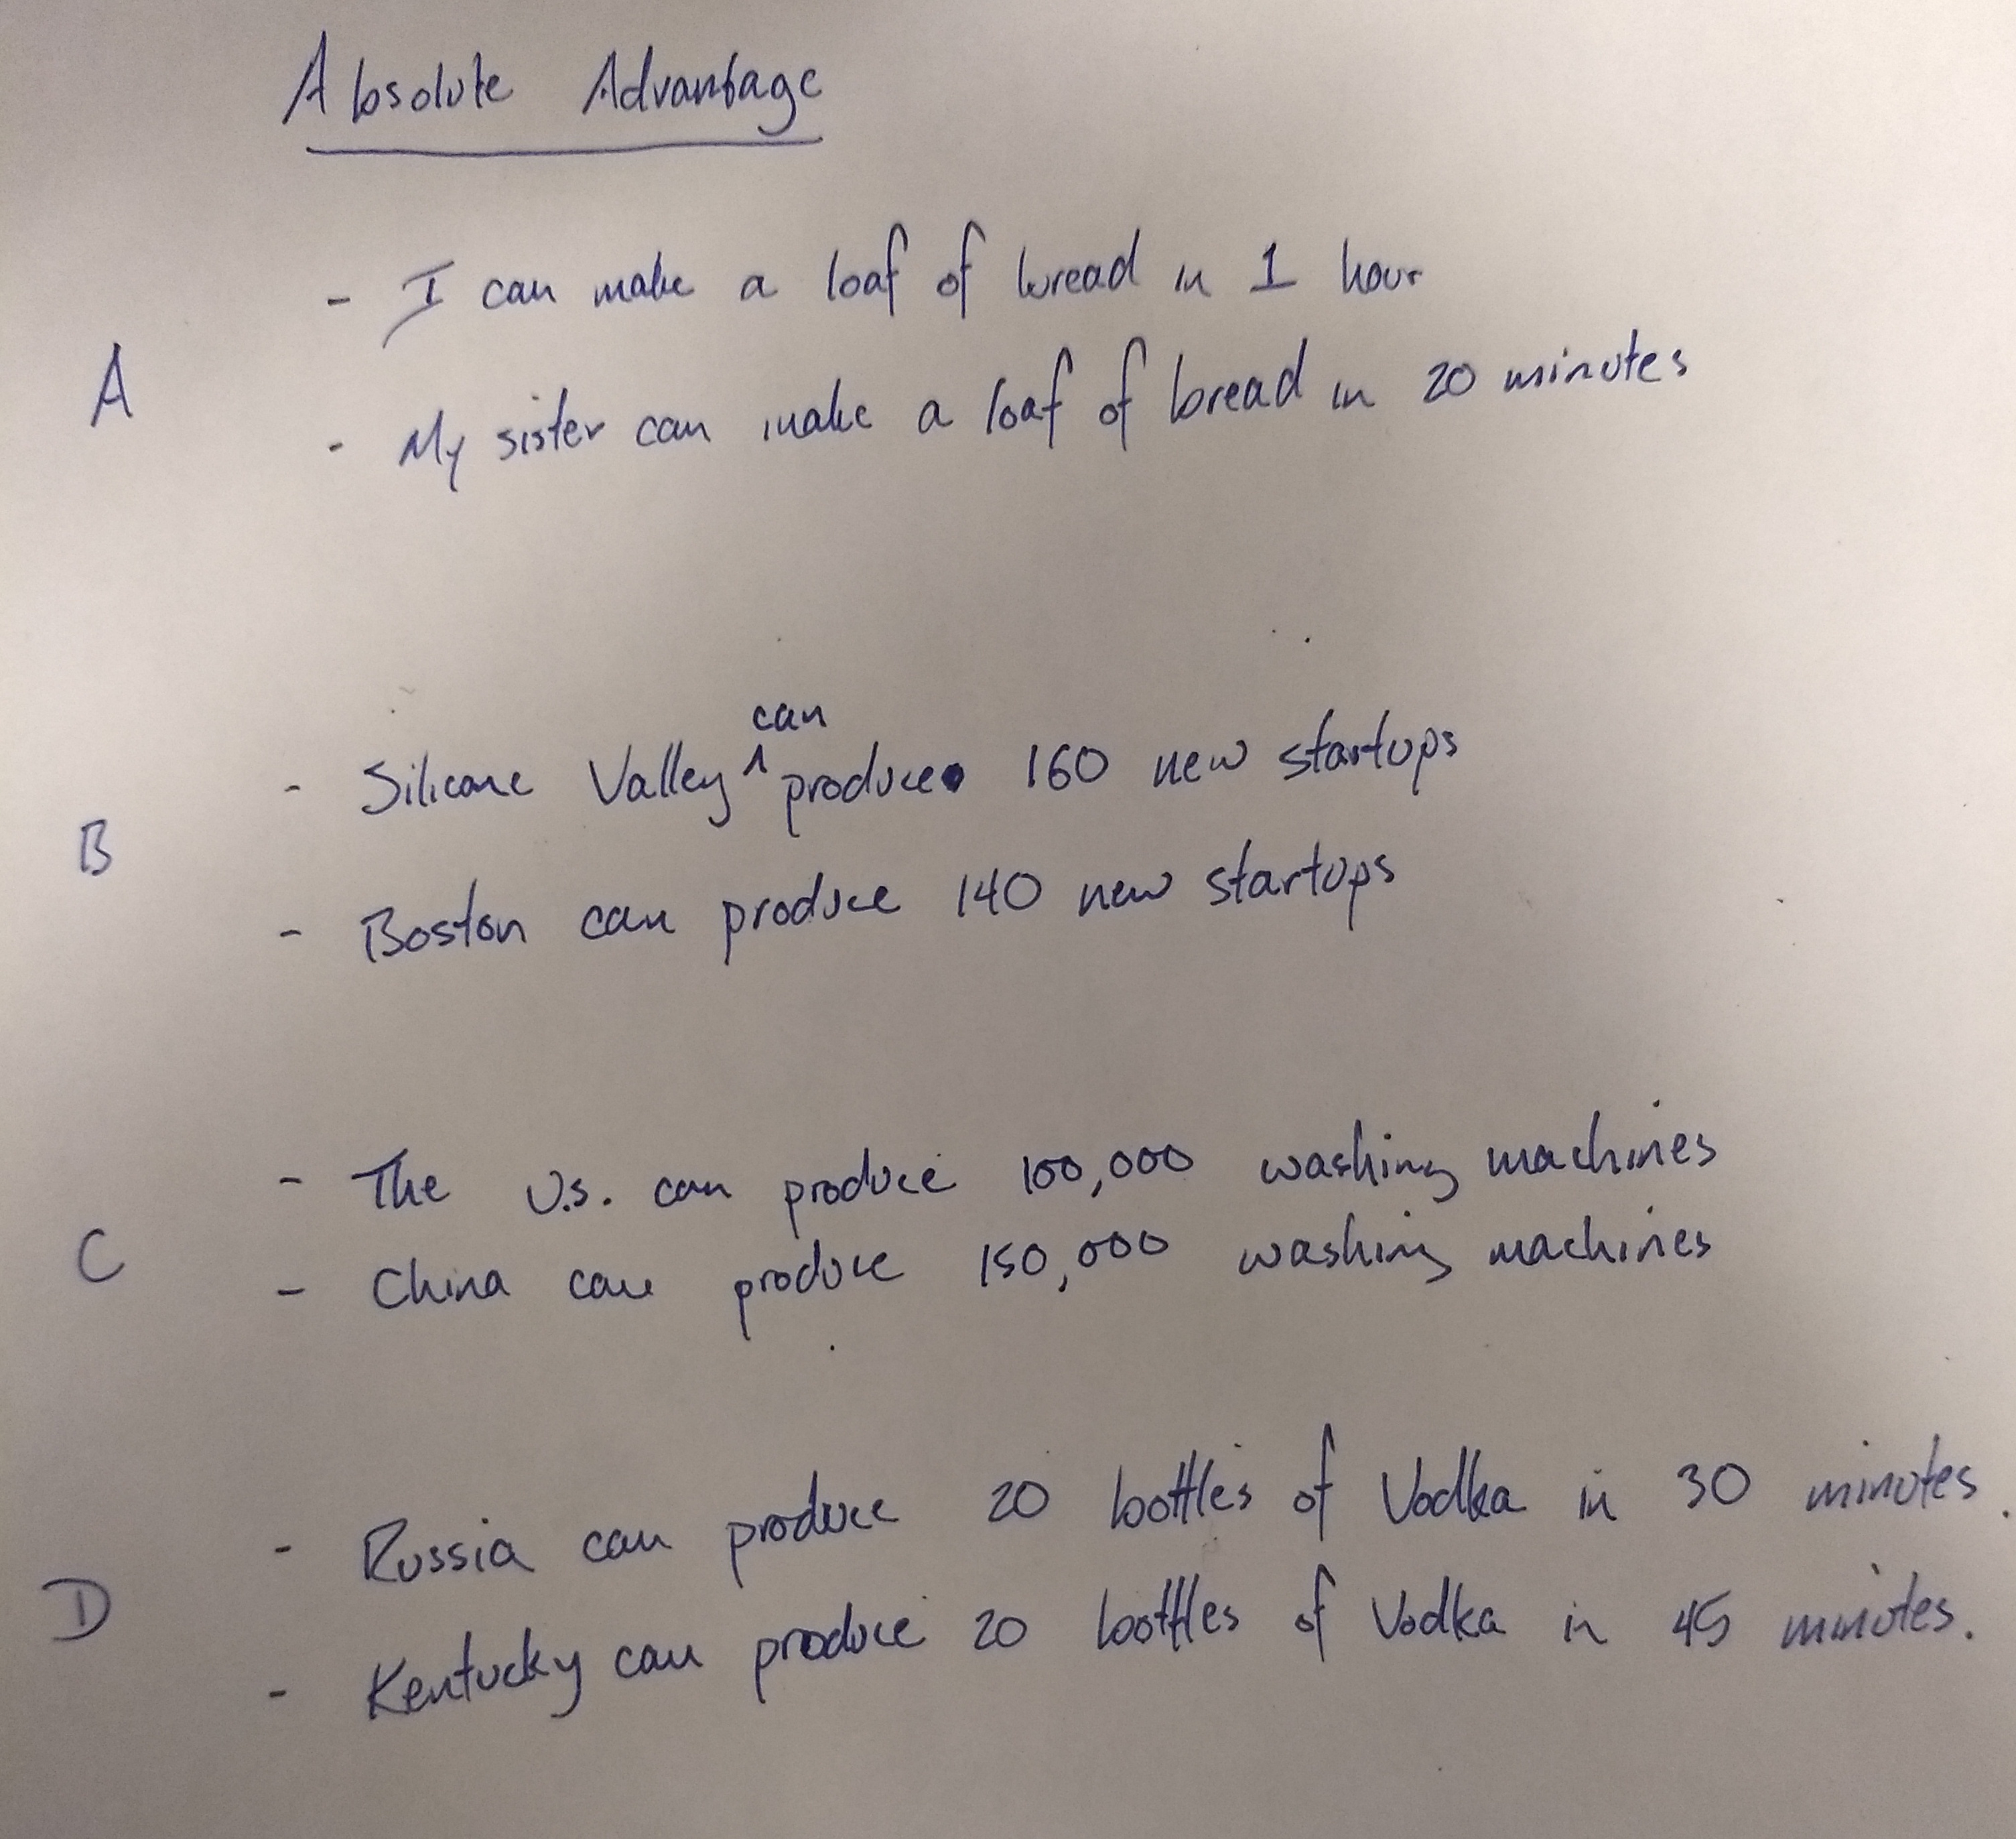 Absolute Advantage
- I can make a loaf of bread in 1 hour
A
- My sister can make a loaf of bread in 20 minutes
can
- Silicone Valley ^ produce 160 new startups
B
- Boston can produce 140 new startups
- The U.S. can produce 100,000 washing machines
C
- China can produce 150,000 washing machines
- Russia can produce 20 bottles of Vodka in 30 minutes.
D
- Kentucky can produce 20 bottles of Vodka in 45 minutes.